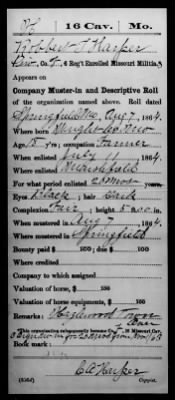 H | 16 Cav. | Mo.
Robbert T Harper
Priv., Co. F, 6 Reg't Enrolled Missouri Militia.
Appears on
Company Muster-in and Descriptive Roll
of the organization named above. Roll dated
Springfield Mo, Aug 7, 1864.
Where born Wright Co Mo
Age, 18 y'rs; occupation Farmer
When enlisted July 11, 1864.
Where enlisted Marshfield
For what period enlisted 20 mos years.
Eyes Black; hair Dark
Complexion Fair; height 5 ft. 10 in.
When mustered in Aug 7, 1864.
Where mustered in Springfield
Bounty paid $ 100; due $ 100
Where credited
Company to which assigned
Valuation of horse, $ 100
Valuation of horse equipments, $ 100
Remarks: Hazlewood Town
This organization subsequently became Co. F, 16 Missouri Cav.
Book mark:
(356d)
C A Harper
Copyist.